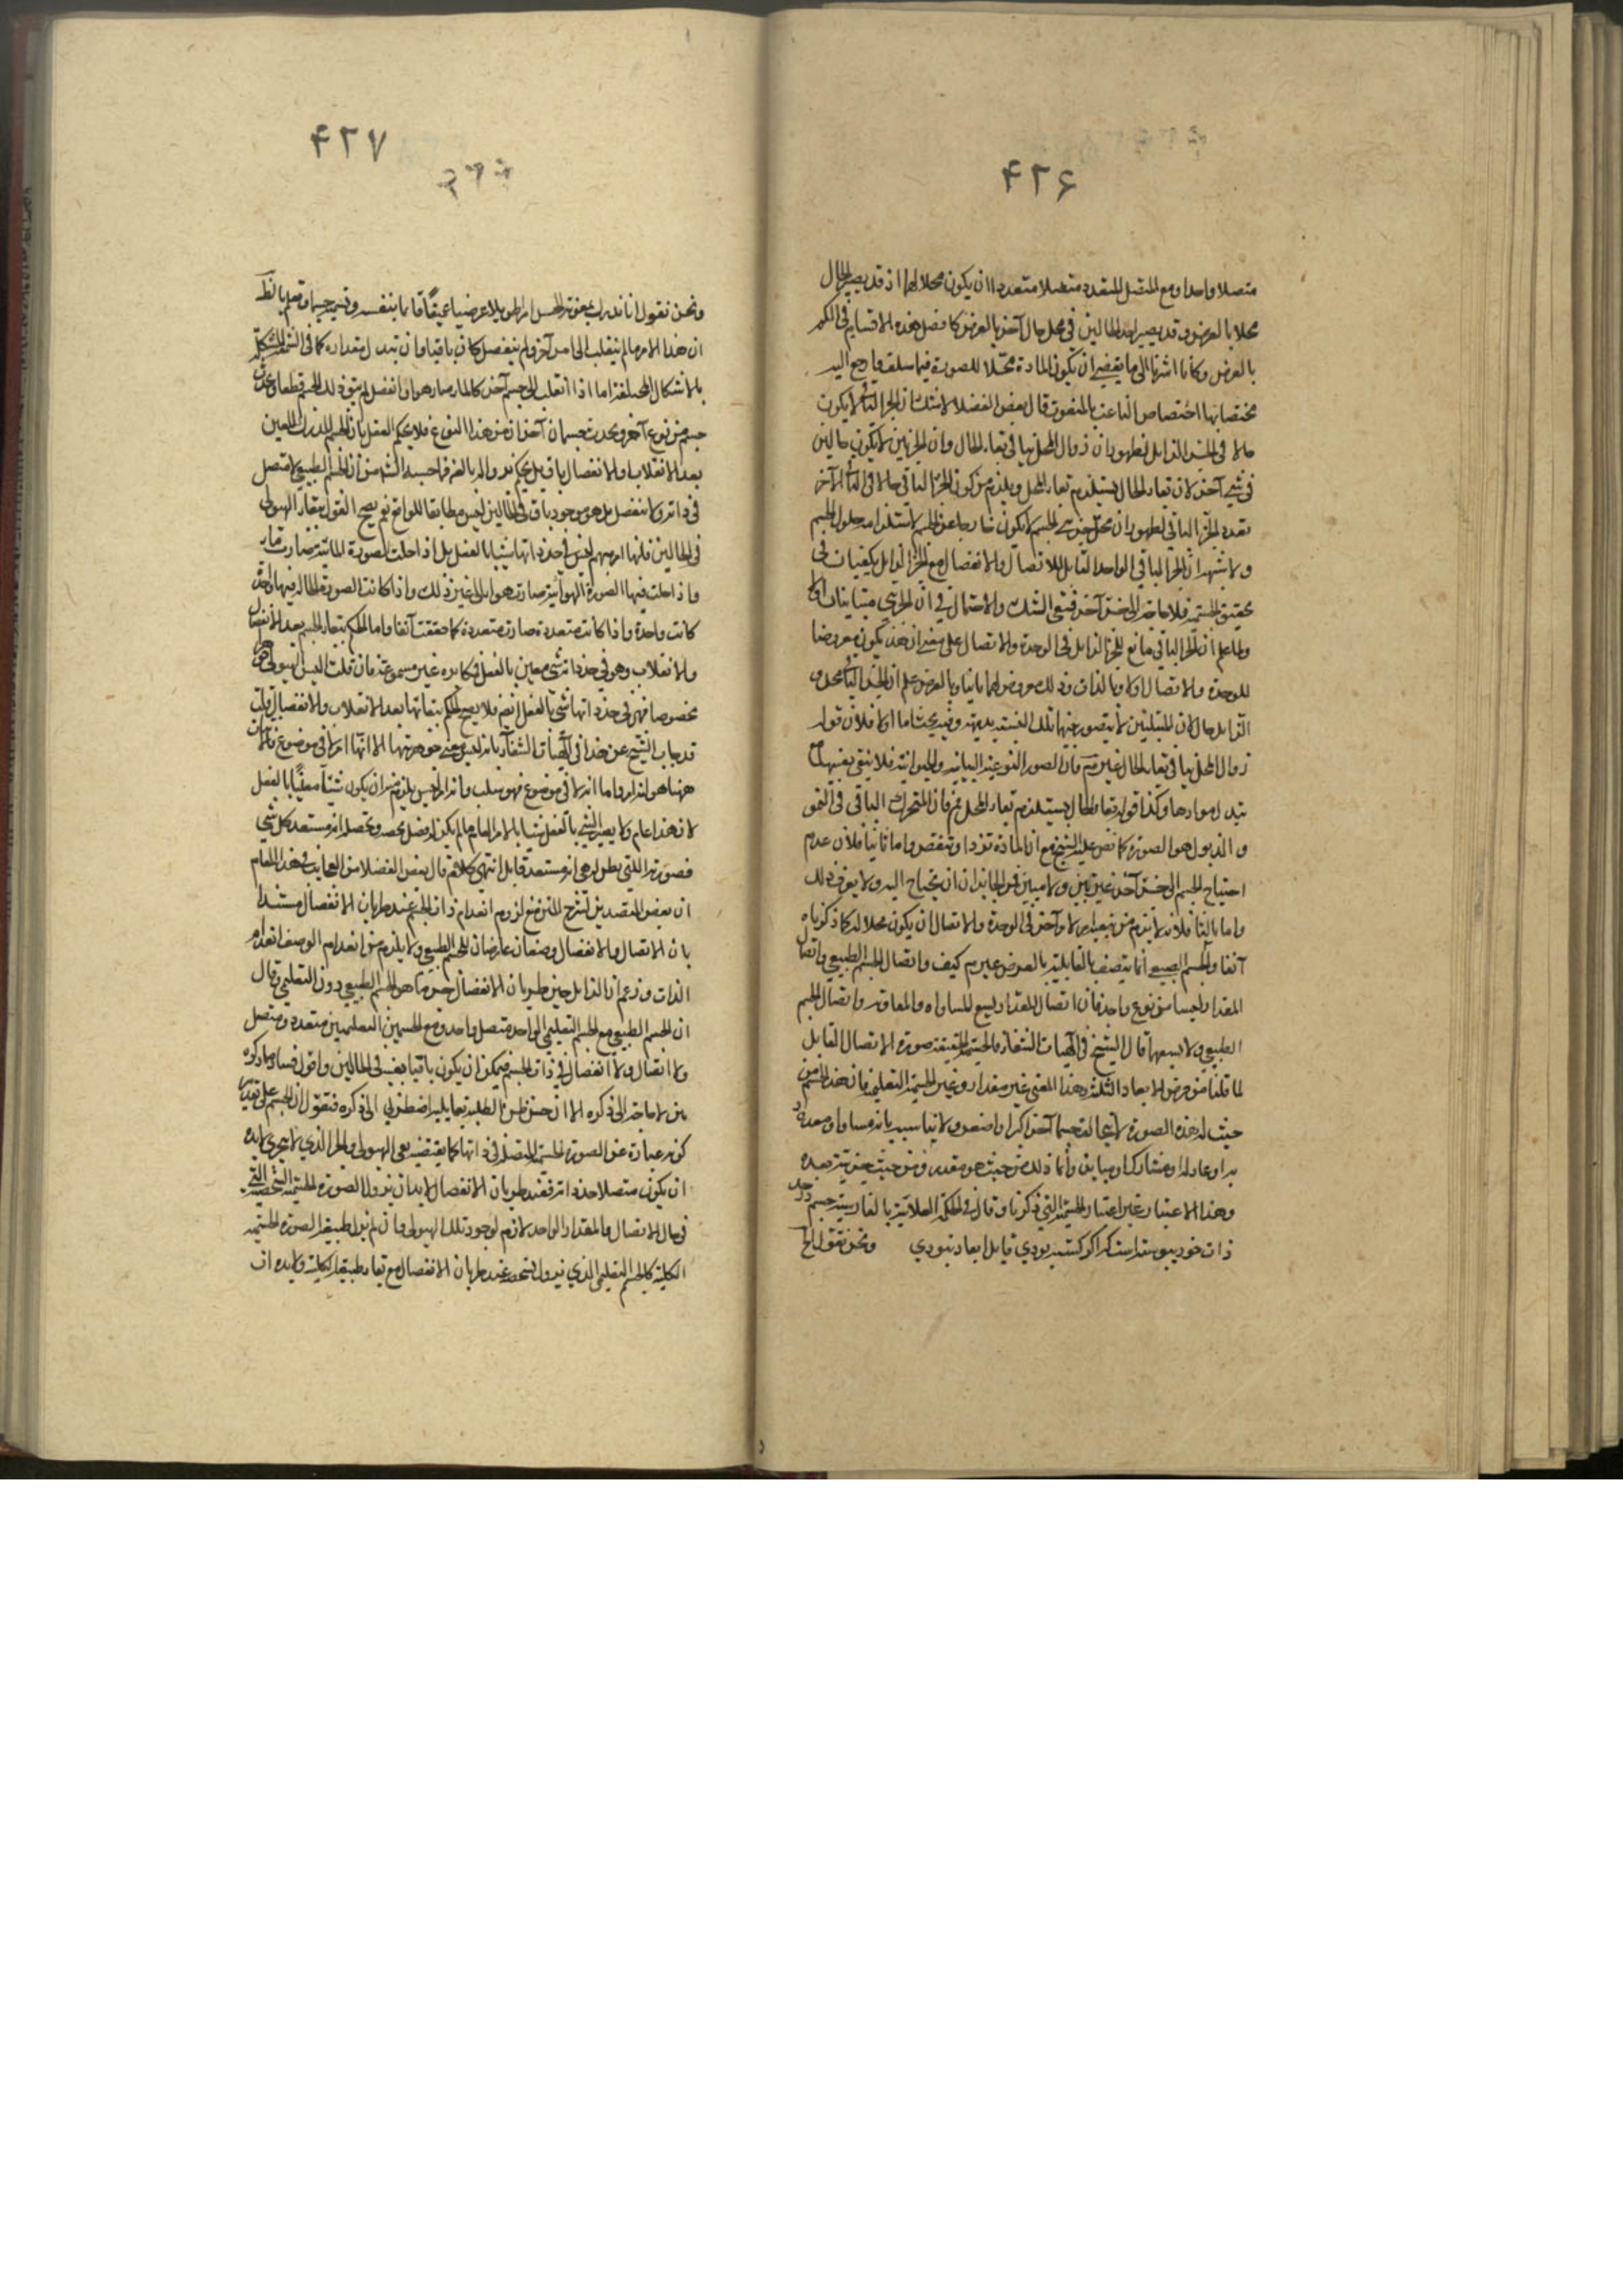 ۴۲۶
متصلا واحدا ومع المتصل المتعدد متصلا متعددا ان يكون محلا لهما اذ قد يصير الحال
محلا بالعرض وقد يصير احد الحالين في محل حال آخر بالعرض كما فصل هذه الاقسام في الكم
بالعرض وكأنا اشرنا الى ما يقتضي ان يكون المادة محلا للصورة فيما سلف فارجع اليه
مختصا بها اختصاص الناعت بالمنعوت قال بعض الفضلا لا شك ان الجزء الباقي لا يكون
حالا في الجزء الزايل لظهور ان زوال المحل ينافي بقاء الحال وان الجزئين لا يكون حالين
في شيء آخر لان بقاء الحال يستلزم بقاء المحل ويلزم من كون الجزء الباقي حالا في الآخر
تعدد الجزء الباقي لظهور ان محل جزء الجسم لا يكون خارجا عن الجسم لاستلزامه حلول الجسم
ولا شبهة ان الجزء الباقي الواحد القابل للاتصال والانفصال مع الجزء الزايل يكفيان في
تحقيق الجسمية فلا حاجة الى جزء آخر فبقي الشك والاحتمال في ان الجزئين متباينان
ولما علم ان الجزء الباقي تابع للجزء الزايل في الوحدة والاتصال على معنى ان هذا يكون معروضا
للوحدة والاتصال اولا وبالذات وذلك معروض لهما ثانيا وبالعرض علم ان الجزء الباقي محل و
الزايل حال لان المتباينين لا يتصور بينهما تلك النسبة بديهة وفيه بحث اما اولا فلان قوله
زوال المحل ينافي بقاء الحال غير مسلم فان الصور النوعية النباتية والحيوانية قد تبقى بعينها مع
تبدل موادها وكذا قوله بقاء الحال يستلزم بقاء المحل مم فان المتحرك الباقي في النمو
والذبول هو الصورة كما نص عليه الشيخ مع ان المادة تزداد وتنقص واما ثانيا فلان عدم
احتياج الجسم الى جزء آخر غير بين ولا مبين فمن الجايز ان يحتاج اليه ولا يعرف ذلك
واما ثالثا فلانه لا يلزم من تبعية امر لامر آخر في الوحدة والاتصال ان يكون محلا له كما ذكرناه
آنفا والجسم الطبيعي انما يتصف بالقابلية بالعرض غير مسلم كيف واتصال الجسم الطبيعي واتصال
المقدار ليسا من نوع واحد فان اتصال المقدار يسع للمساواة والمفاوتة واتصال الجسم
الطبيعي لا يسعهما قال الشيخ في الهيات الشفاء فالجسمية بالحقيقة صورة الاتصال القابل
لما قلنا من فرض الابعاد الثلثة وهذا المعنى غير المقدار وغير الجسمية التعليمية فان هذا الجسم من
حيث له هذه الصورة لا يخالف جسما آخر بانه اكبر او اصغر ولا يناسبه بانه مساو او معدود
به او عاد له او مشارك او مباين وانما ذلك له من حيث هو مقدر ومن حيث جزء منه يعده
وهذا الاعتبار غير اعتبار الجسمية التي ذكرنا وقال في الحكمة العلائية بالفارسية جسم در حد
ذات خود پيوسته است كه اگر گسسته بودي قابل ابعاد نبودي ونحن نقول الخ
۴۲۷
ونحن نقول انا ندرك بمعونة الحس امرا طويلا عريضا عميقا قائما بنفسه ونسميه جسما ونعلم بالنظر
ان هذا الامر ما لم ينقلب الى امر آخر ولم ينفصل كان باقيا وان تبدل مقداره كما في الشمعة المتشكلة
بالاشكال المختلفة اما اذا انقلب الى جسم آخر كالماء صار هواء او انفصل لم يبق ذلك الجسم قطعا وحدث
جسم من نوع آخر ويحدث جسمان آخران من هذا النوع فلا يحكم العقل بان الجسم المدرك المعين
بعد الانقلاب والانفصال باق بل يحكم بزواله بالمرة فما حسبه الشه من ان الجسم الطبيعي لا متصل
في ذاته ولا منفصل بل هو موجود باق في الحالين ليس مطابقا للواقع نعم يصح القول ببقاء الهيولى
في الحالين فانها امر مبهم ليس في حد ذاتها شيئا بالفعل بل اذا حلت الصورة المائية صارت ماء
واذا حلت فيها الصورة الهوائية صارت هواء الى غير ذلك واذا كانت الصورة الحالة فيها واحدة
كانت واحدة واذا كانت متعددة صارت متعددة كما حققت آنفا واما الحكم ببقاء الجسم بعد الانفصال
والانقلاب وهو في حد ذاته شيء معين بالفعل فمكابرة غير مسموعة فان قلت اليس الهيولى جوهرا
مخصوصا فهي في حد ذاتها شيء بالفعل ايضا فلا يصح الحكم ببقائها بعد الانقلاب والانفصال قلت
قد اجاب الشيخ عن هذا في الهيات الشفاء بانه ليس معنى جوهريتها الا انها امر لا في موضوع فالاثبات
ههنا هو انه امر واما انه لا في موضوع فهو سلب وانه امر ليس يلزم منه ان يكون شيئا معينا بالفعل
لان هذا عام ولا يصير الشيء بالفعل شيئا بالامر العام ما لم يكن له فصل يخصه ويحصله انه مستعد لكل شيء
فصورته التي يظن له هي انه مستعد قابل انتهى كلامه قال بعض الفضلا من العجايب في هذا المقام
ان بعض المتصدين لشرح المتن منع لزوم انعدام ذات الجسم عند طريان الانفصال مستندا
بان الاتصال والانفصال وصفان عارضان للجسم الطبيعي ولا يلزم من انعدام الوصف انعدام
الذات وزعم ان الزايل حين طريان الانفصال جزما هو الجسم الطبيعي دون التعليمي وقال
ان الجسم الطبيعي مع الجسم التعليمي الواحد متصل واحد ومع الجسمين التعليميين متعدد ومتصل
ولا اتصال ولا انفصال في ذات الجسم فيمكن ان يكون باقيا بعينه في الحالين واقول فساد ما ذكره
بين لا حاجة الى ذكره الا ان حسن ظن الطلبة بقايليه اضطرني الى ذكره فنقول ان الجسم على تقدير
كونه عبارة عن الصورة الجسمية المتصلة في ذاتها كما يقتضيه نفي الهيولى والجزء الذي لا يتجزى لابد
ان يكون متصلا في حد ذاته فعند طريان الانفصال لابد ان يزول الصورة الجسمية الشخصية التي
في حال الاتصال والمقدار الواحد لازم لوجود تلك الهيولى وان لم يزل طبيعة الصورة الجسمية
الكلية كالجسم التعليمي الذي يزول شخصه عند طريان الانفصال مع بقاء طبيعته الكلية ولابد ان